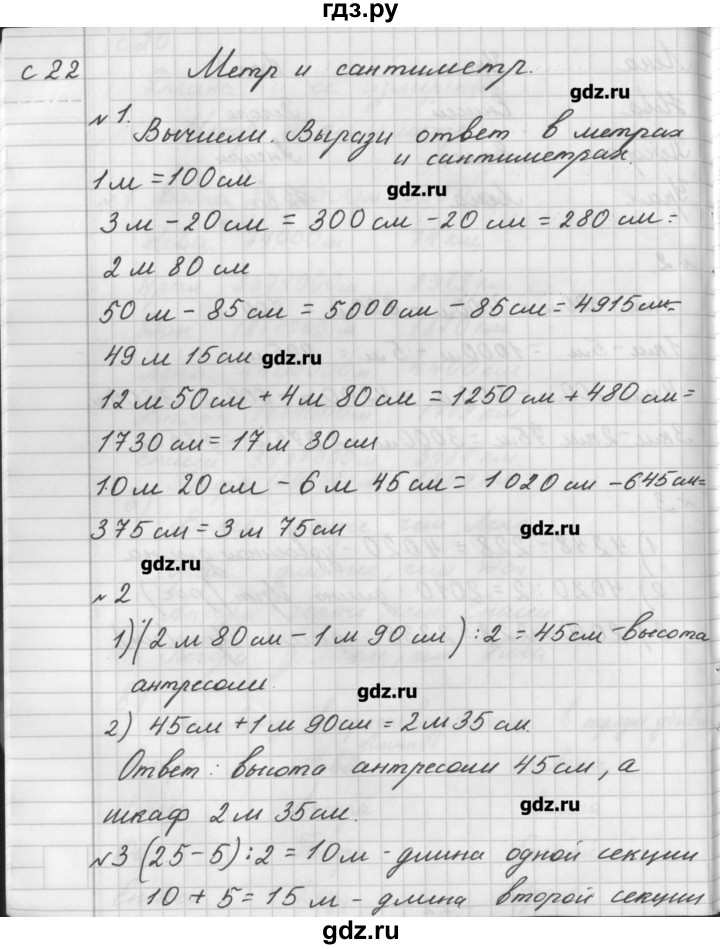 гдз.ру
с 22 Метр и сантиметр.
gdz.ru
№ 1.
Вычисли. Вырази ответ в метрах
и сантиметрах.
1 м = 100 см
gdz.ru
3 м - 20 см = 300 см - 20 см = 280 см =
2 м 80 см
50 м - 85 см = 5000 см - 85 см = 4915 см =
49 м 15 см gdz.ru
12 м 50 см + 4 м 80 см = 1250 см + 480 см =
1730 см = 17 м 30 см
10 м 20 см - 6 м 45 см = 1020 см - 645 см =
375 см = 3 м 75 см gdz.ru
gdz.ru
№ 2
1) (2 м 80 см - 1 м 90 см) : 2 = 45 см - высота
антресоли. gdz.ru
2) 45 см + 1 м 90 см = 2 м 35 см.
Ответ: высота антресоли 45 см, а
шкаф 2 м 35 см. gdz.ru
№3 (25 - 5) : 2 = 10 м - длина одной секции
10 + 5 = 15 м - длина второй секции
gdz.ru